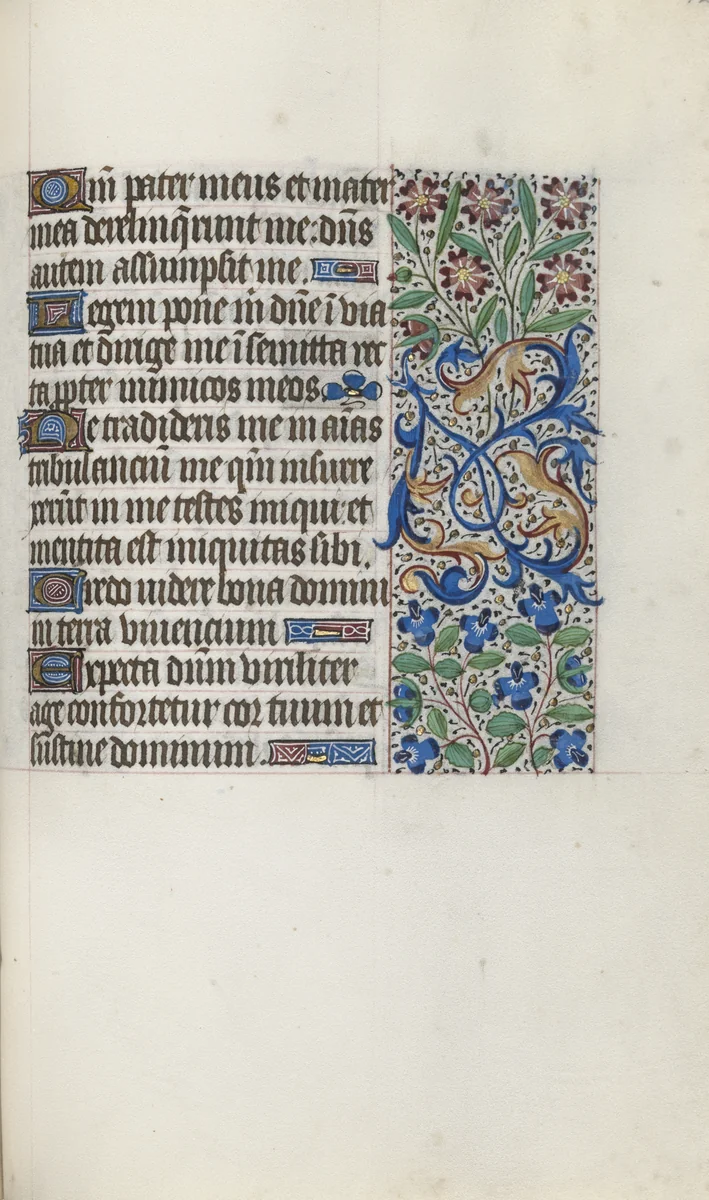 Qm̄ pater meus et mater
mea derelinq̄runt me: dn̄s
autem assumpsit me.
Legem pone m̄ dn̄e ī via
tua et dirige me ī semitta rec
ta ꝓpter inimicos meos
Ne tradideris me in aīas
tribulanciū me qm̄ insurre
xerūt in me testes iniqui et
mentita est iniquitas sibi.
Credo videre bona domini
in terra vivencium
Expecta dūm viriliter
age confortetur cor tuum et
sustine dominum.